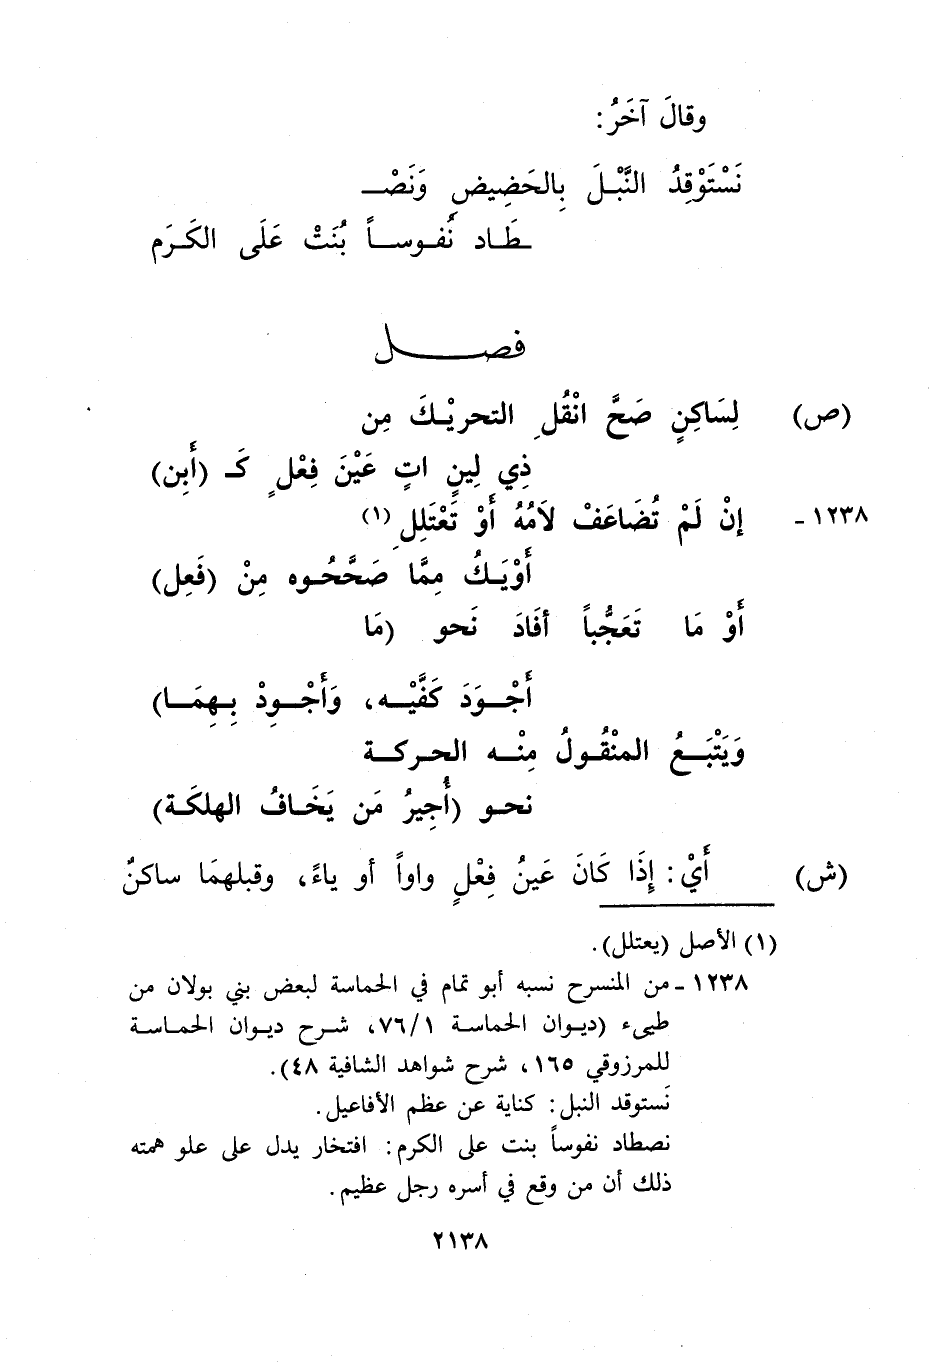 وقالَ آخَرُ:
نَسْتَوْقِدُ النَّبْلَ بِالحَضِيضِ وَنَصْـ
ـطَاد نُفوساً بُنَتْ عَلَى الكَرَم
فصل
(ص) لِسَاكِنٍ صَحَّ انْقُلِ التحريْكَ مِن
ذِي لِينٍ اتٍ عَيْنَ فِعْلٍ كَـ (أَبِن)
١٢٣٨ - إنْ لَمْ تُضَاعَفْ لاَمُهُ أَوْ تَعْتَلِلِ (١)
أَوْيَكُ مِمَّا صَحَّحُوه مِنْ (فَعِل)
أَوْ مَا تَعَجُّباً أفَادَ نَحو (مَا
أَجْوَدَ كَفَّيْه، وَأَجْوِدْ بِهِمَا)
وَيَتْبَعُ المنْقُولُ مِنْه الحركة
نحو (أُجِيرُ مَن يَخَافُ الهلكَة)
(ش) أَيْ: إِذَا كَانَ عَينُ فِعْلٍ واواً أو ياءً، وقبلهمَا ساكنٌ
(١) الأصل (يعتلل).
١٢٣٨ - من المنسرح نسبه أبو تمام في الحماسة لبعض بني بولان من
طيىء (ديوان الحماسة ٧٦/١، شرح ديوان الحماسة
للمرزوقي ١٦٥، شرح شواهد الشافية ٤٨).
نَستوقد النبل: كناية عن عظم الأفاعيل.
نصطاد نفوساً بنت على الكرم: افتخار يدل على علو همته
ذلك أن من وقع في أسره رجل عظيم.
٢١٣٨